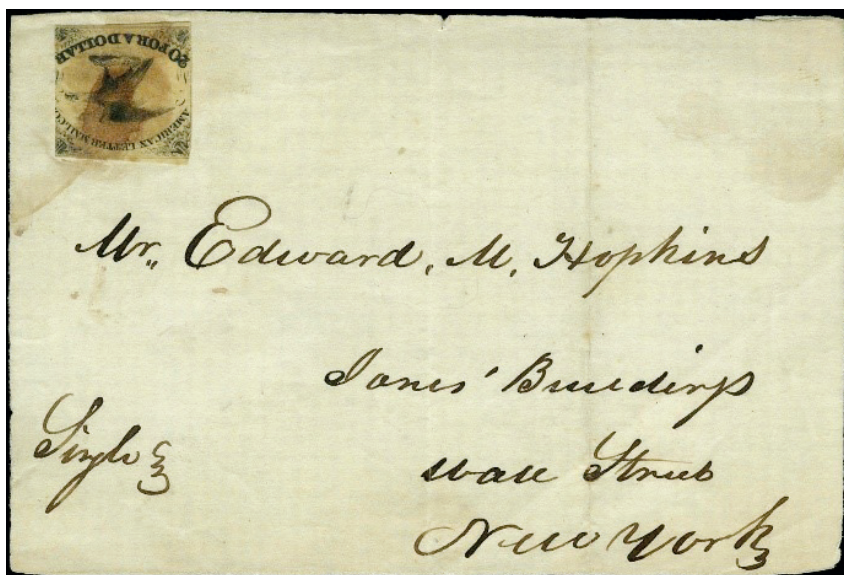 20 FOR A DOLLAR
AMERICAN LETTER MAIL CO.
Mr. Edward. M. Hopkins
Janes' Buildings
Single
Wall Street
New York